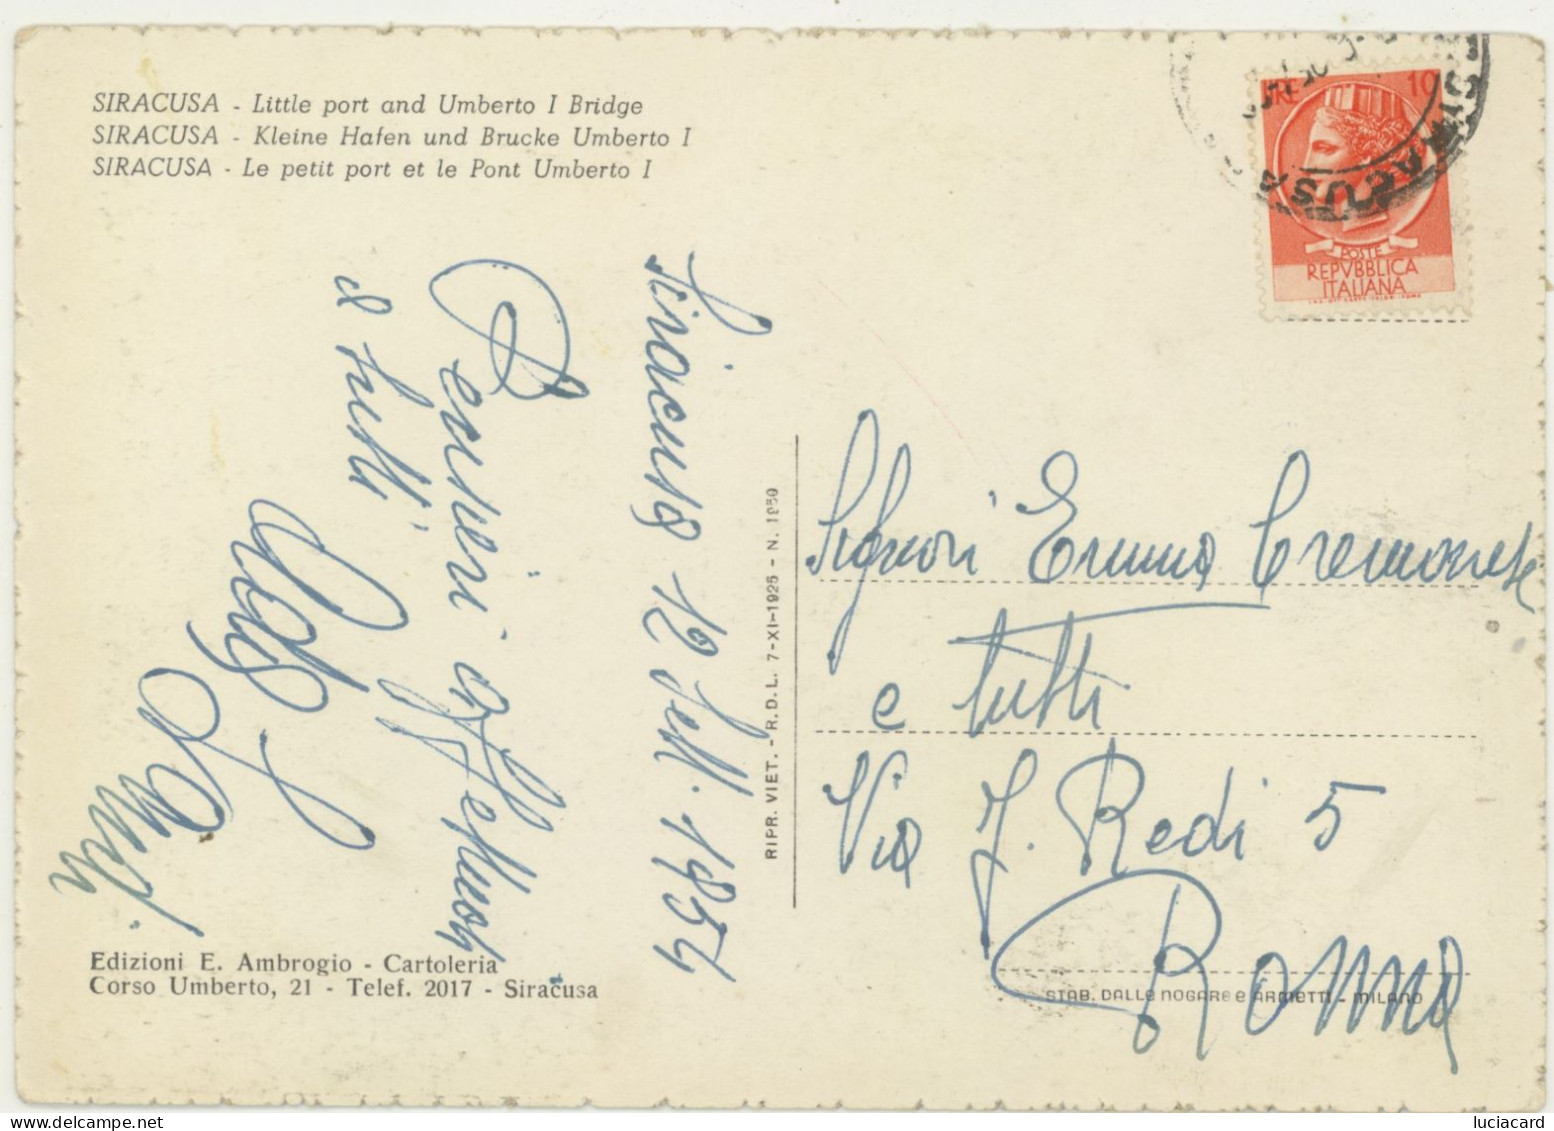 SIRACUSA - Little port and Umberto I Bridge
SIRACUSA - Kleine Hafen und Brucke Umberto I
SIRACUSA - Le petit port et le Pont Umberto I
LIRE 10
POSTE
REPVBBLICA
ITALIANA
SIRACUSA
Siracusa 12 Sett. 1954
Pensieri affettuosi
a tutti
RIPR. VIET. - R.D.L. 7-XI-1925 - N. 1950
Signori Emma Cremonese
e tutti
Via F. Redi 5
Roma
Edizioni E. Ambrogio - Cartoleria
Corso Umberto, 21 - Telef. 2017 - Siracusa
STAB. DALLE NOGARE E ARMETTI - MILANO
luciacard